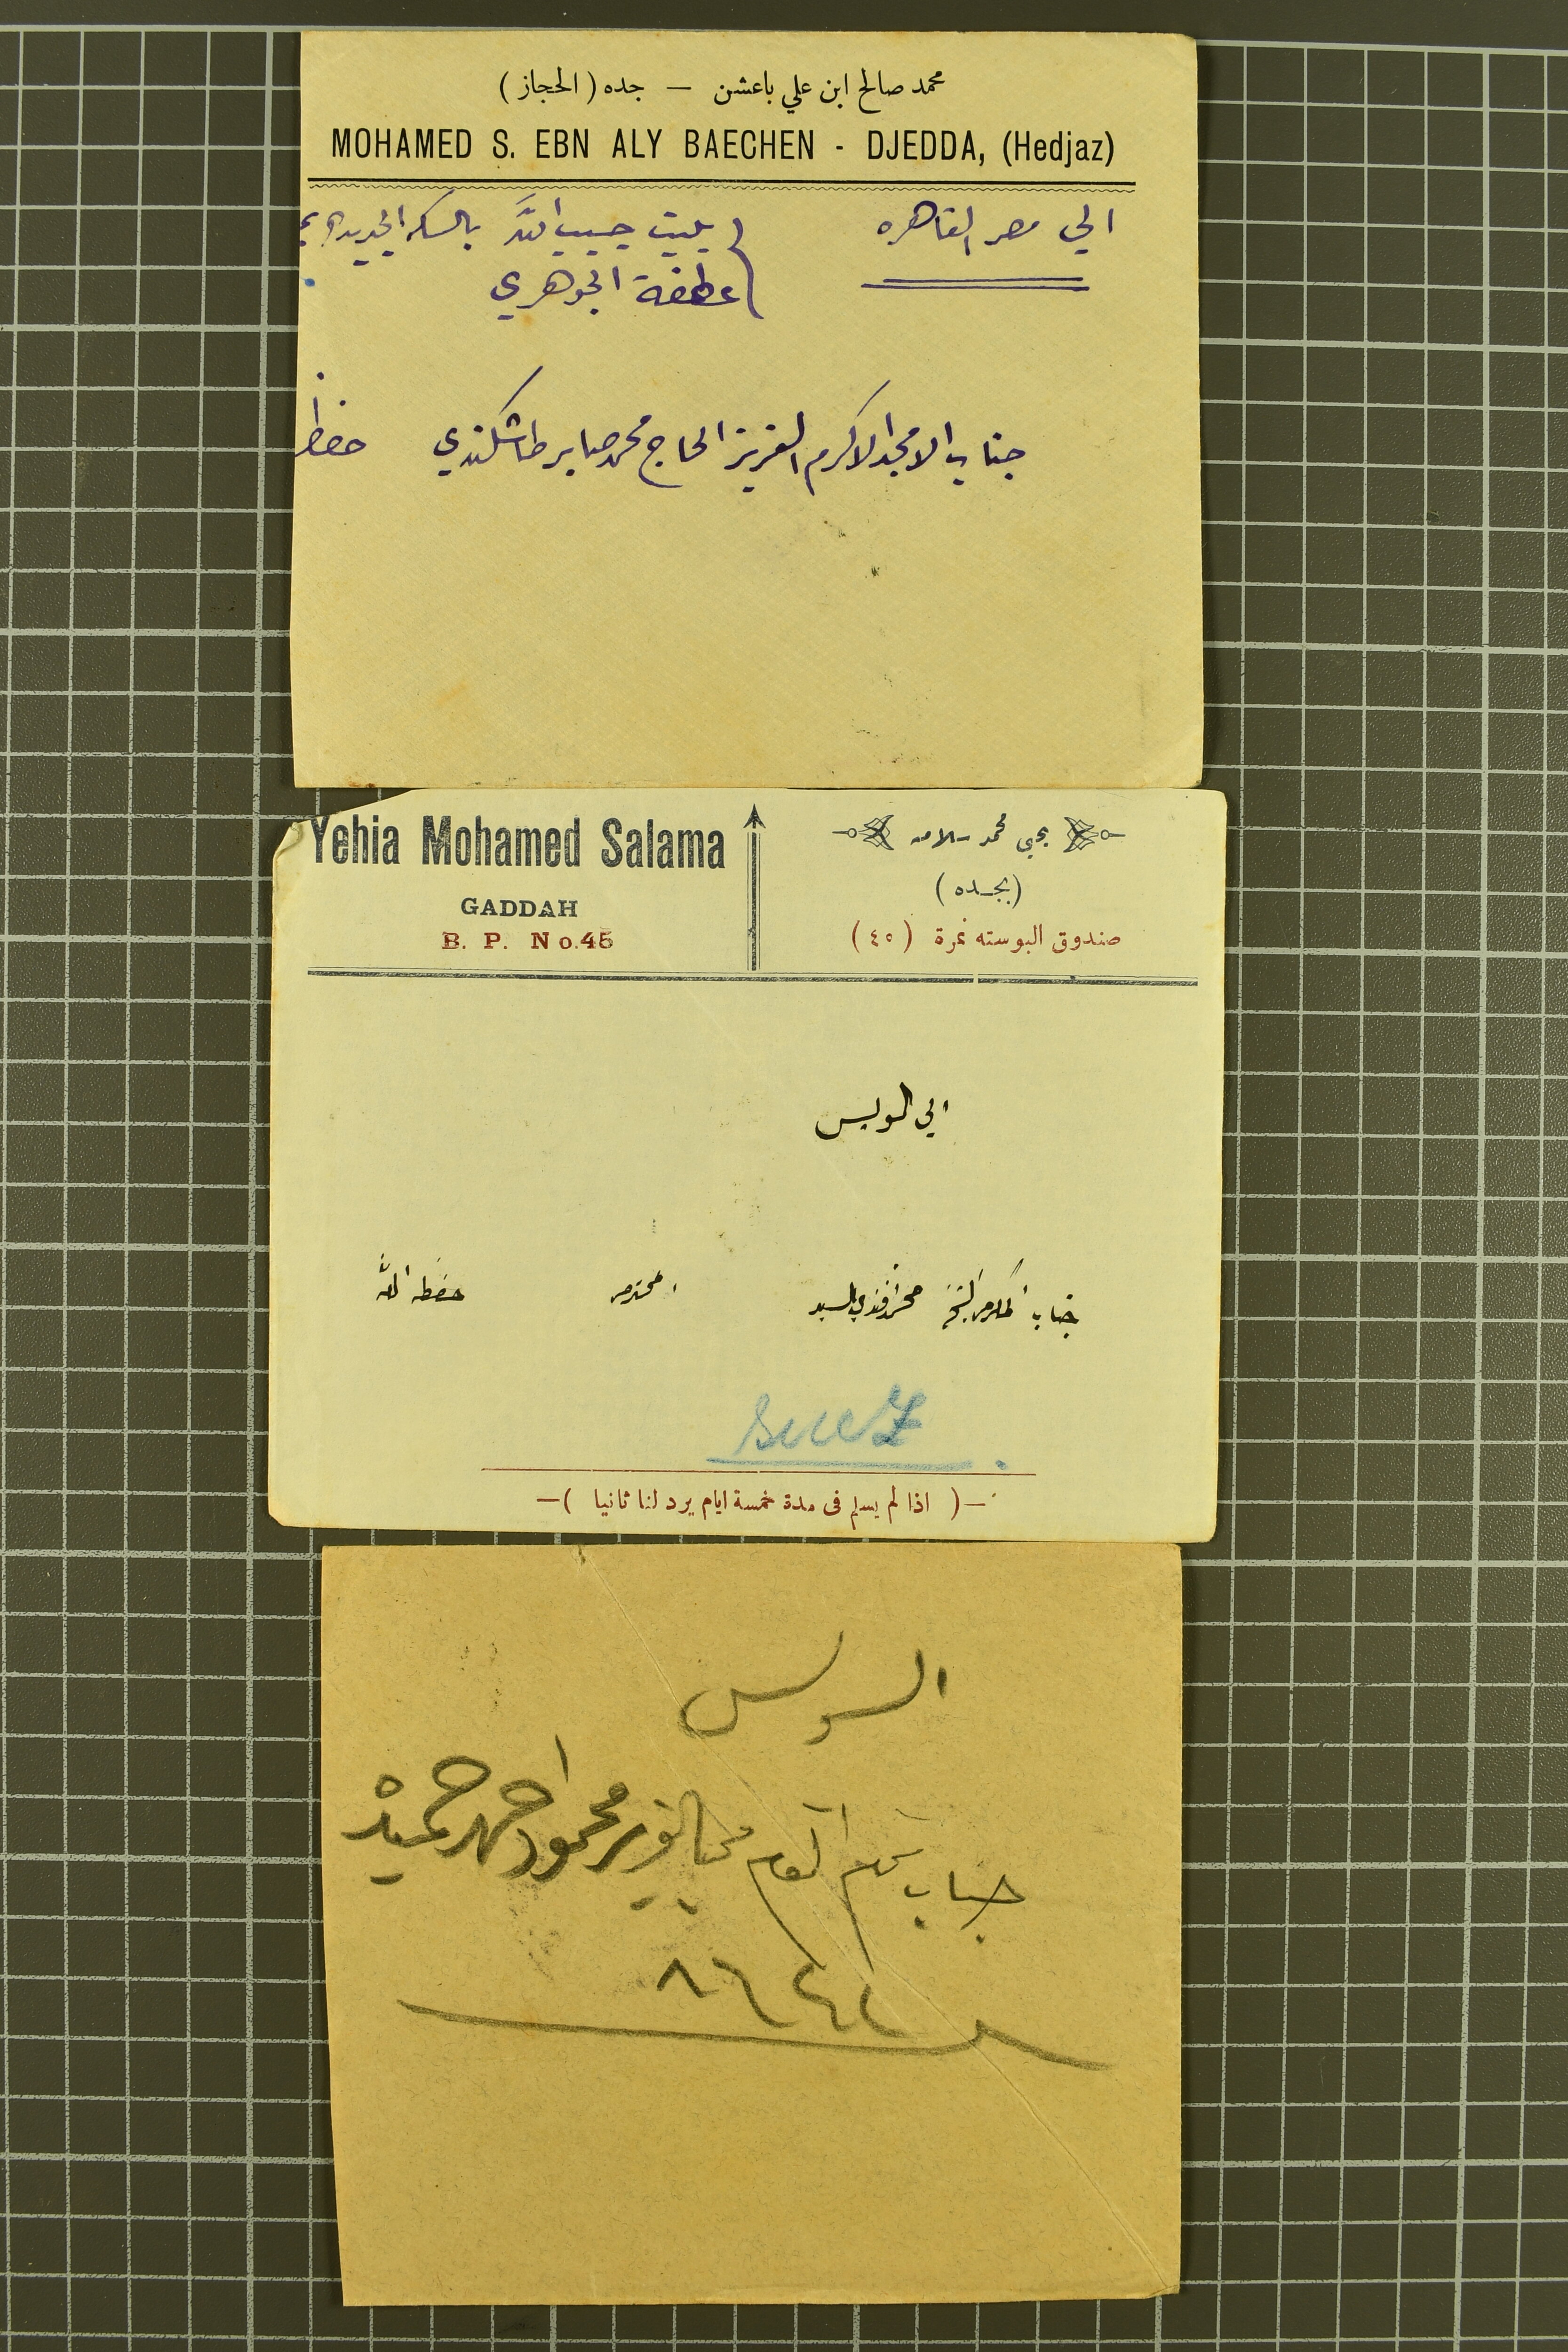 محمد صالح ابن علي باعشن — جده (الحجاز)
MOHAMED S. EBN ALY BAECHEN - DJEDDA, (Hedjaz)
الي مصر القاهره
ببيت حبيب الله بالسكه الجديده
عطفة الجوهري
جناب الامجد الاكرم العزيز الحاج محمد صابر طاشكندي
Yehia Mohamed Salama
GADDAH
B. P. No.45
يحيى محمد سلامه
(بجده)
صندوق البوسته نمرة (٤٥)
الي السويس
جناب المكرم الشيخ محمد افندي السيد المحترم حفظه الله
Suez
—( اذا لم يسلم فى مدة خمسة ايام يرد لنا ثانيا )—
السويس
جناب محمود احمد حميد
٨٦٤٢